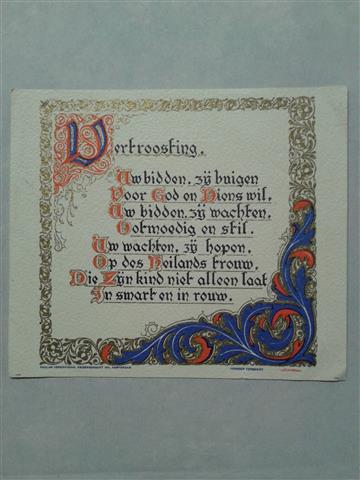 Vertroosting.
Uw bidden, zij buigen
Voor God en Diens wil,
Uw bidden, zij wachten,
Ootmoedig en stil.
Uw wachten, zij hopen,
Op des Heilands trouw,
Die Zijn kind niet alleen laat
In smart en in rouw.